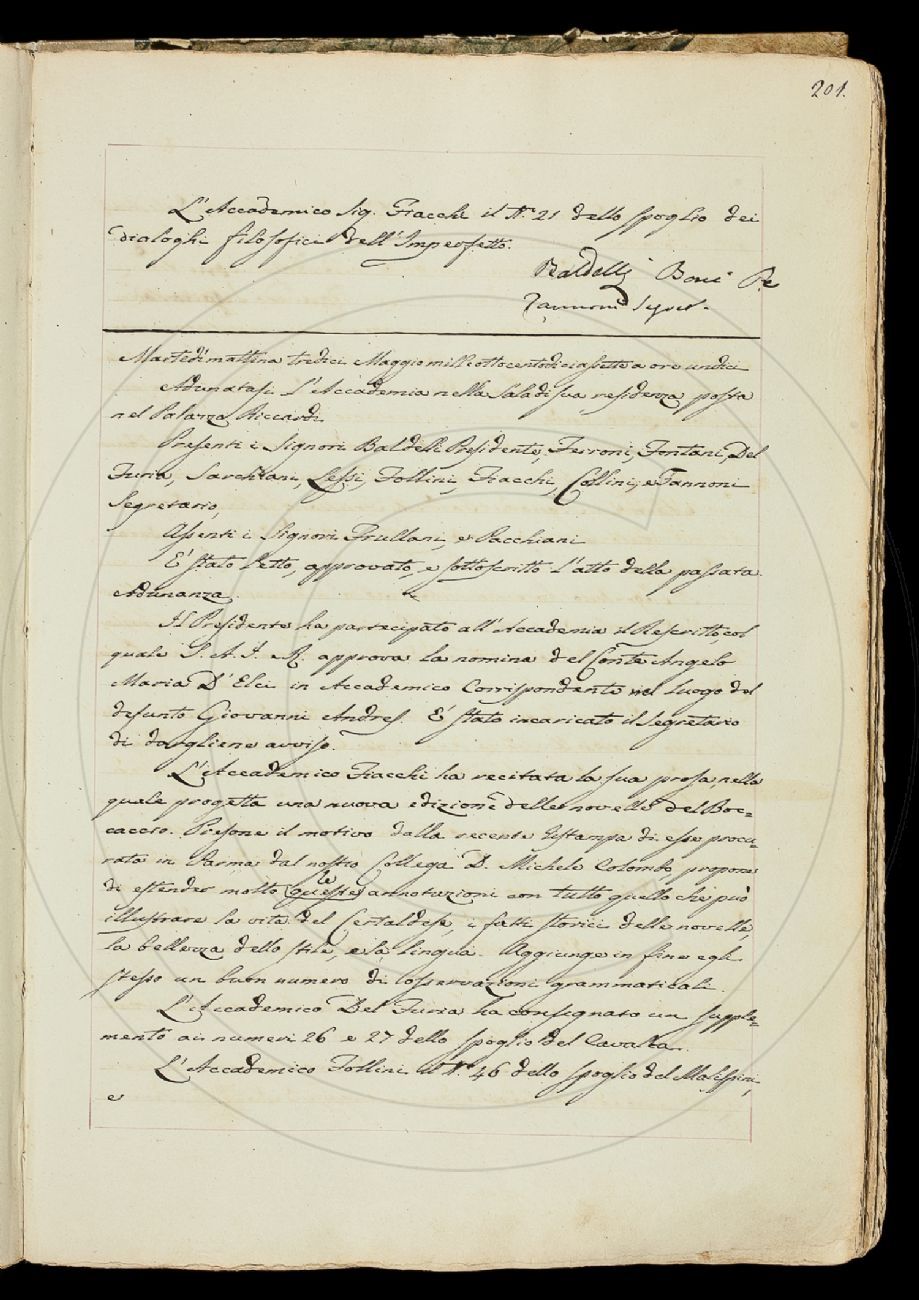 201.
L'Accademico Sig. Fiacchi il N.° 21 dello spoglio dei
dialoghi filosofici dell'Imperfetto.
Baldelli Boni Pe
Zannoni Segret.
Martedì mattina tredici Maggio mille ottocento diciassette a ore undici
Adunatasi L'Accademia nella Sala di sua residenza posta
nel Palazzo Riccardi.
Presenti i Signori Baldelli Presidente, Ferroni, Fontani, Del
Furia, Sarchiani, Lessi, Follini, Fiacchi, Collini, e Zannoni
Segretario,
Assenti i Signori Frullani, e Pacchiani
E' stato letto, approvato, e sottoscritto l'atto della passata
Adunanza.
Il Presidente ha partecipato all'Accademia il Rescritto, col
quale S. A. I. R. approva la nomina del Conte Angelo
Maria D'Elci in Accademico Corrispondente nel luogo del
defunto Giovanni Andres. E' stato incaricato il Segretario
di dargliene avviso.
L'Accademico Fiacchi ha recitata la sua prosa, nella
quale progetta una nuova edizione delle novelle del Boc=
caccio. Presone il motivo dalla recente ristampa di esse procu=
rata in Parma dal nostro Collega D. Michele Colombo propone
di estender molto (queste) le annotazioni con tutto quello che può
illustrare la vita del Certaldese, i fatti storici delle novelle,
la bellezza dello stile, e la lingua. Aggiunge in fine egli
stesso un buon numero di osservazioni grammaticali.
L'Accademico Del Furia ha consegnato un supple=
mento ai numeri 26 e 27 dello spoglio del Cavalca.
L'Accademico Follini il N.° 46 dello spoglio del Malespini,
e